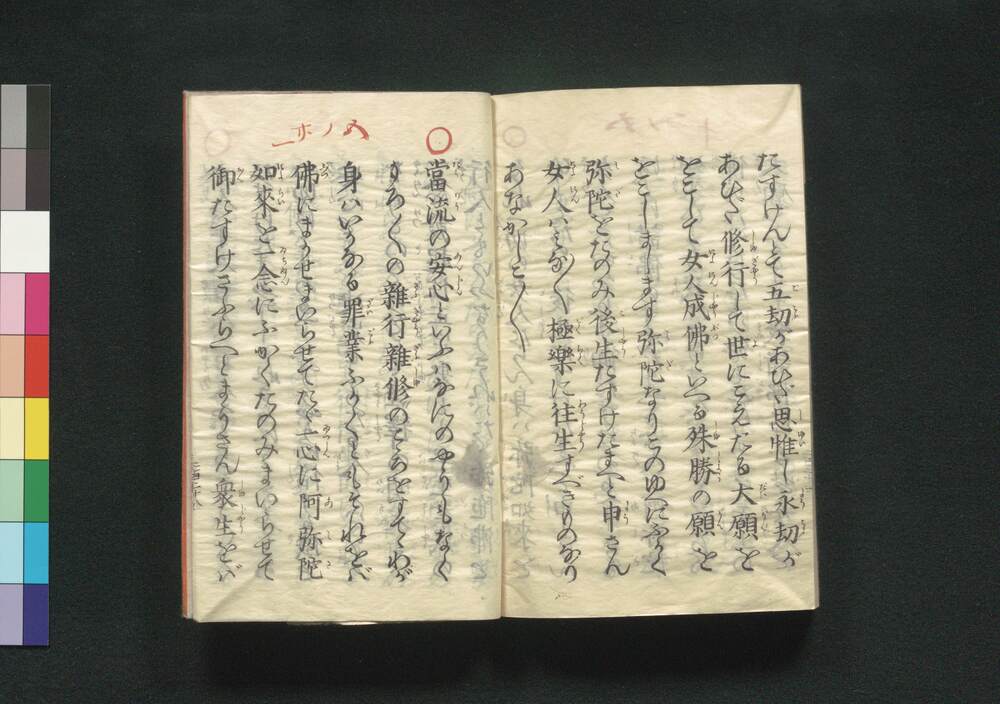 たすけんとて五劫があひだ思惟し永劫が
あひだ修行して世にこえたる大願を
をこして女人成佛といへる殊勝の願を
をこしまします弥陀なりこのゆへにふかく
弥陀をたのみ後生たすけたまへと申さん
女人はみな〳〵極樂に往生すべきものなり
あなかしこ〳〵
當流の安心といふはなにのやうもなく
もろ〳〵の雜行雜修のこゝろをすてゝわが
身はいかなる罪業ふかくともそれをば
佛にまかせまいらせてたゞ一心に阿弥陀
如來を一念にふかくたのみまいらせて
御たすけさふらへとまうさん衆生をば